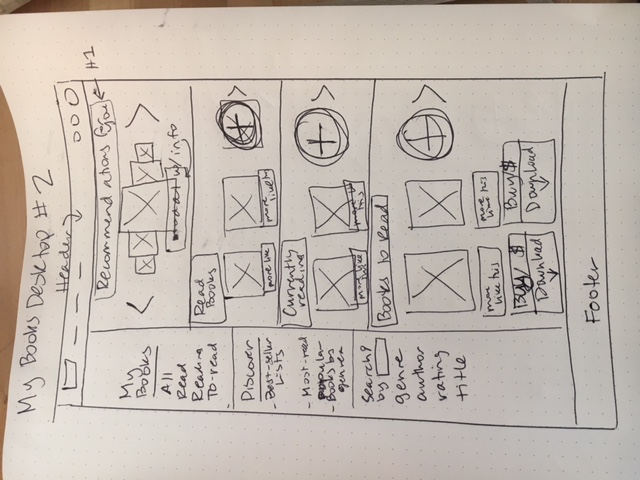 My Books Desktop #2
Header
Recommendations for you
#1
w/ info
My
Books
All
Read
Reading
To-read
Discover
- Best-seller
Lists
- Most-read
popular
- Books by
genre
search?
by
genre
author
rating
title
Read
Books
more like
more like this
Currently
reading
More like
this
more like
this
Books to Read
more
like this
more
like this
Buy/ $
Download
Buy/$
Download
Footer